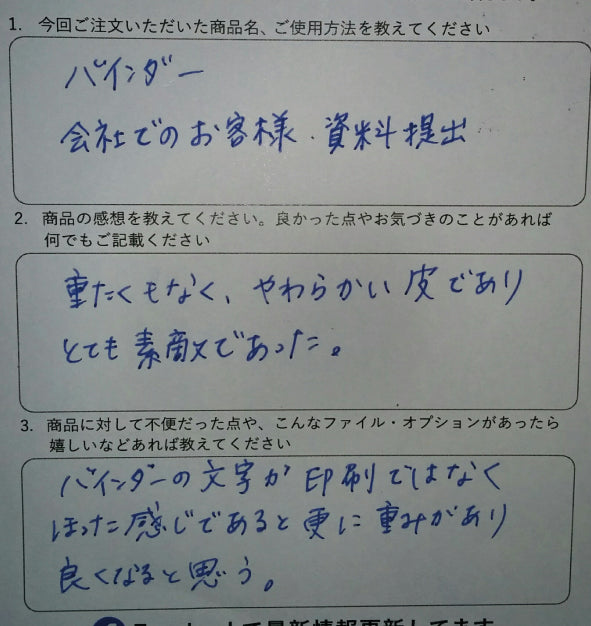 1. 今回ご注文いただいた商品名、ご使用方法を教えてください
バインダー
会社でのお客様・資料提出
2. 商品の感想を教えてください。良かった点やお気づきのことがあれば
何でもご記載ください
重たくもなく、やわらかい皮であり
とても素敵であった。
3. 商品に対して不便だった点や、こんなファイル・オプションがあったら
嬉しいなどあれば教えてください
バインダーの文字が印刷ではなく
ほった感じであると更に重みがあり
良くなると思う。
で最新情報更新してます